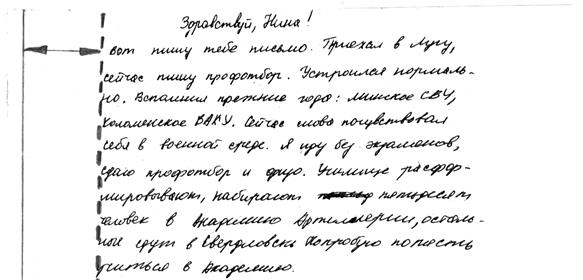 Здравствуй, Нина!
Вот пишу тебе письмо. Приехал в Лугу,
сейчас пишу профотбор. Устроился нормаль-
но. Вспомнил прежние года: минское СВУ,
Коломенское ВАКУ. Сейчас снова почувствовал
себя в военной среде. Я иду без экзаменов,
сдаю профотбор и физо. Училище расфор-
мировывают, набирают пятьдесят
человек в Академию Артиллерии, осталь-
ные едут в Свердловск. Попробую попасть
учиться в Академию.